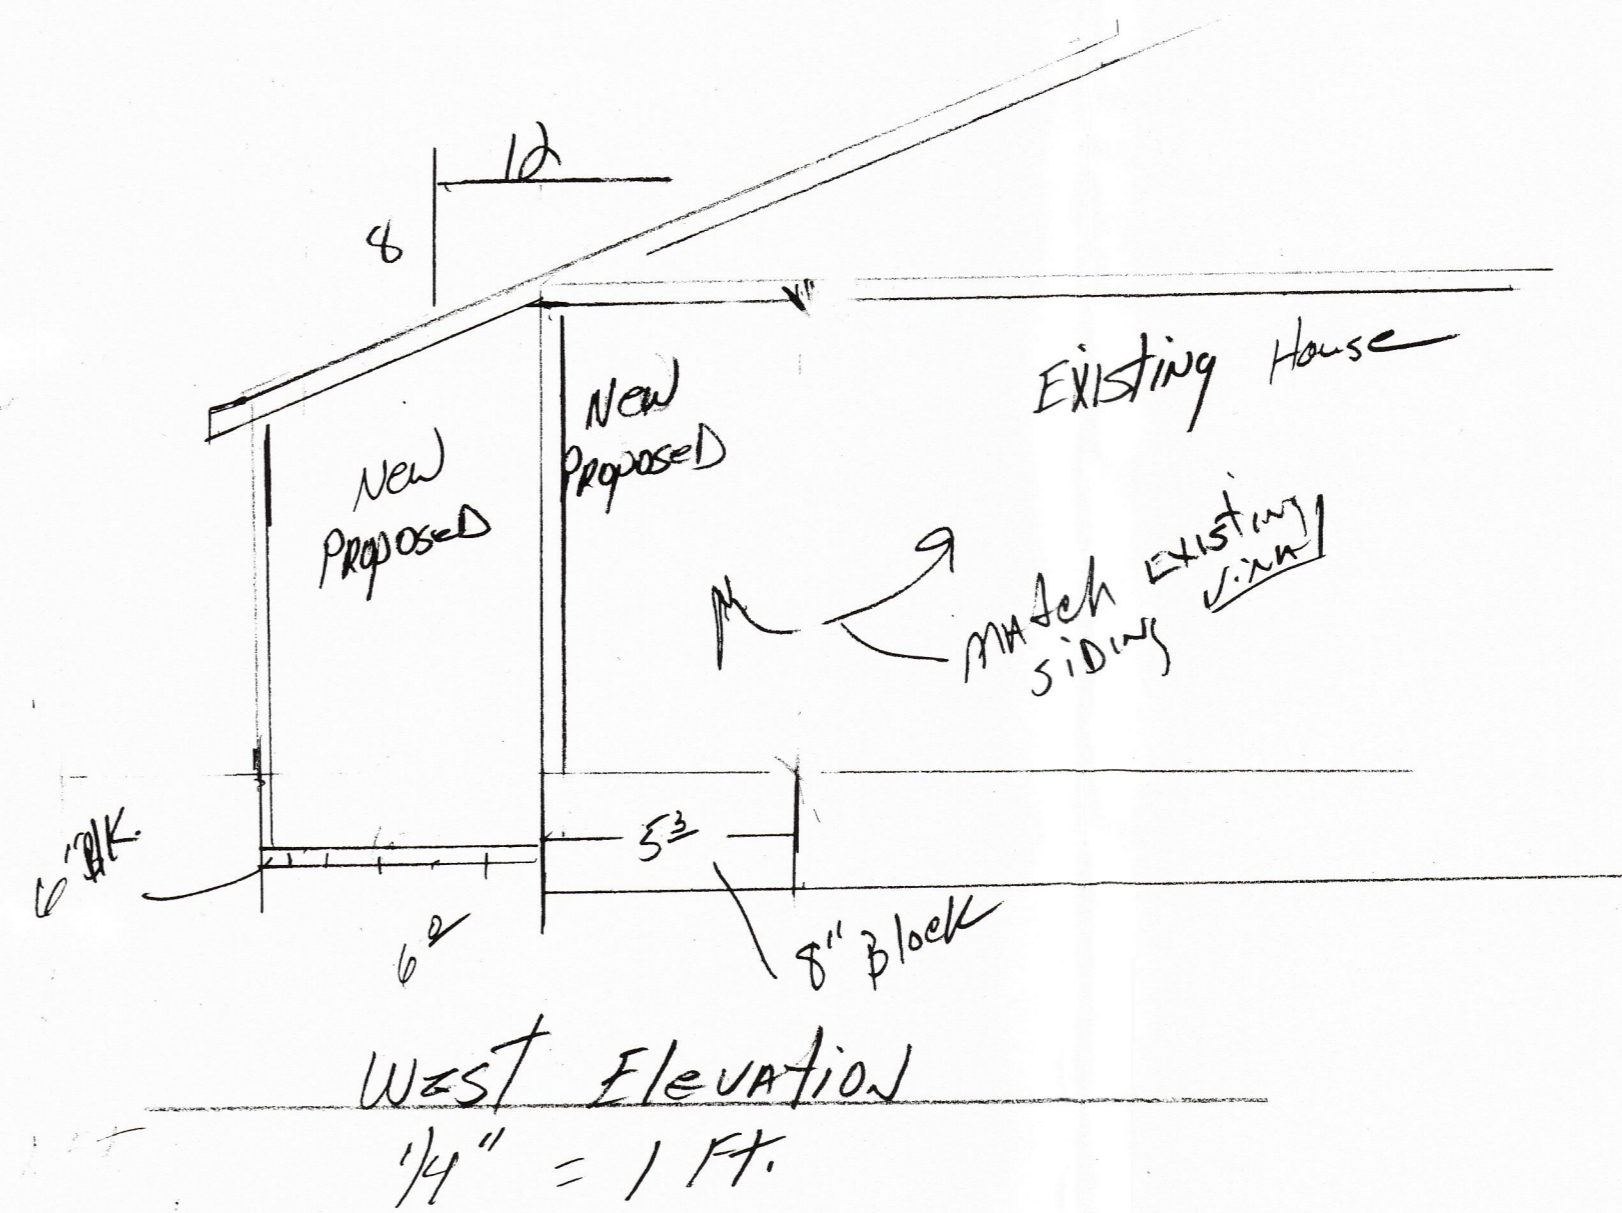 12
8
New
Proposed
New
Proposed
Existing House
Match Existing
Siding Vinyl
6" Blk.
5 3
6 0
8" Block
West Elevation
1/4" = 1 Ft.